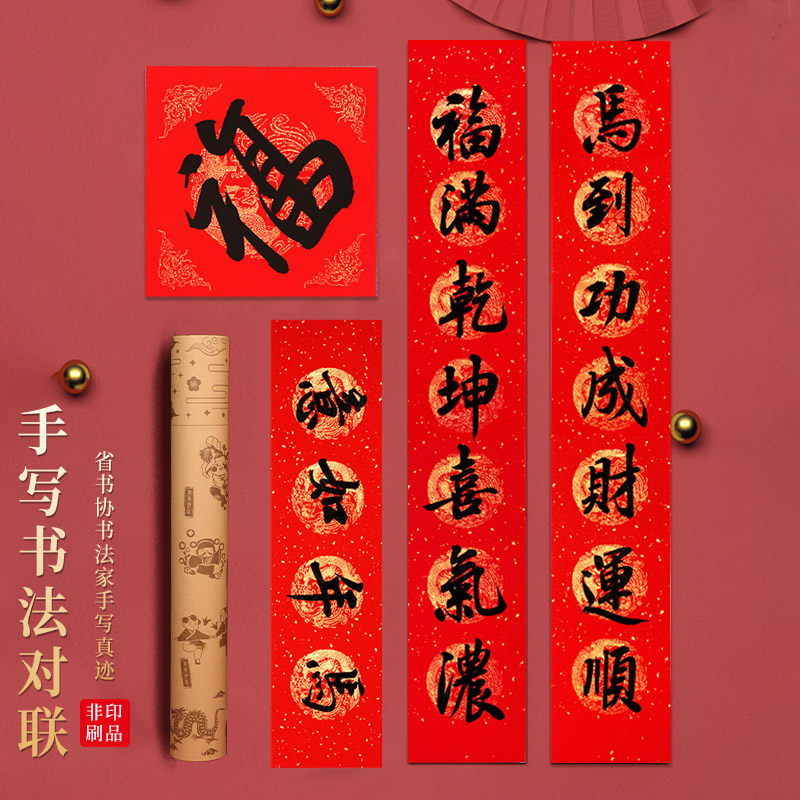 福
馬到功成財運順
福满乾坤喜氣濃
馬年如意
手写书法对联
省书协书法家手写真迹
非印
刷品